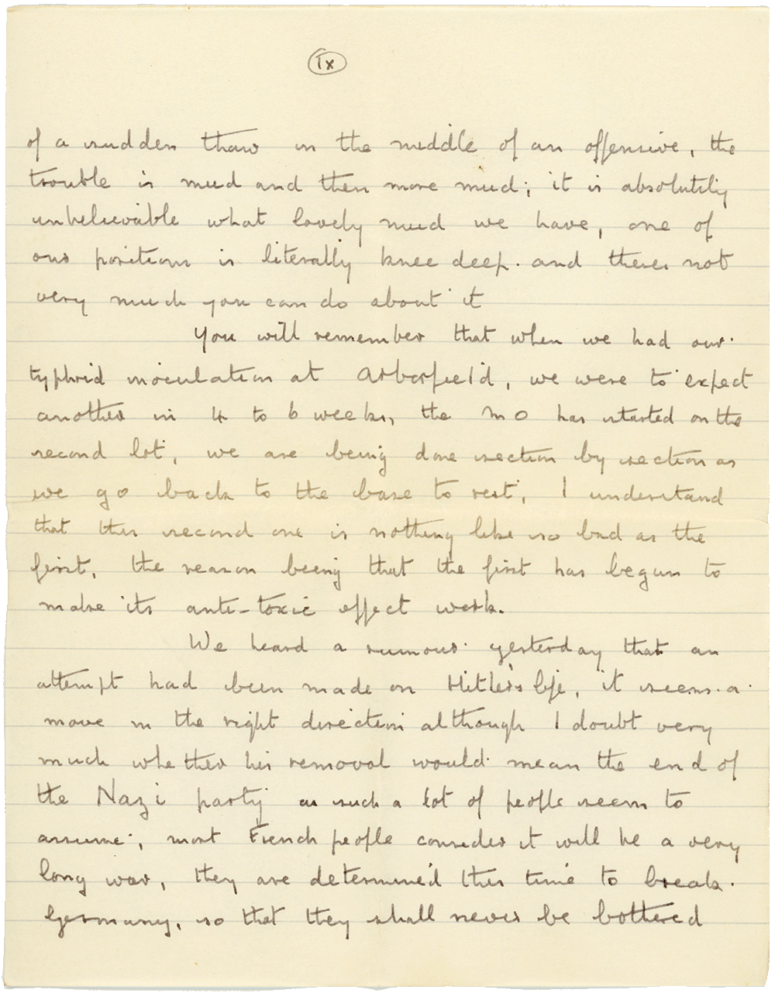 IX
of a sudden thaw in the middle of an offensive, the
trouble is mud and then more mud; it is absolutely
unbelievable what lovely mud we have, one of
our positions is literally knee deep. and theres not
very much you can do about it
You will remember that when we had our
typhoid inoculation at Arborfield, we were to expect
another in 4 to 6 weeks, the M O has started on the
second lot, we are being done section by section as
we go back to the base to rest, I understand
that this second one is nothing like so bad as the
first, the reason being that the first has begun to
make its anti-toxic effect work.
We heard a rumour yesterday that an
attempt had been made on Hitler's life, it seems a
move in the right direction although I doubt very
much whether his removal would mean the end of
the Nazi party as such a lot of people seem to
assume, most French people consider it will be a very
long war, they are determined this time to break
Germany, so that they shall never be bothered